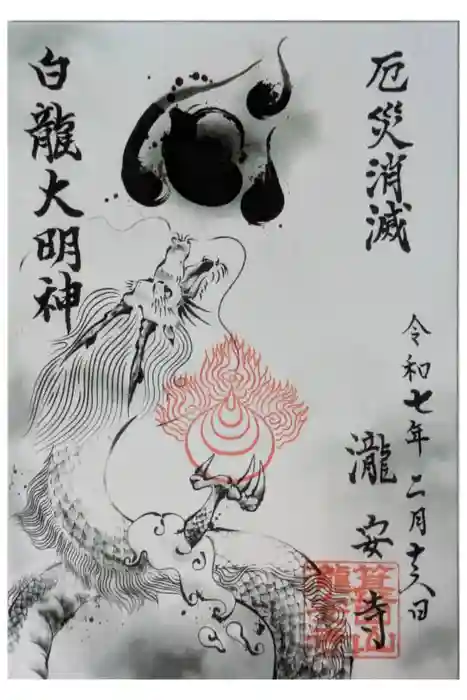 厄災消滅
令和七年二月十六日
瀧安寺
箕面山
瀧安寺
白龍大明神